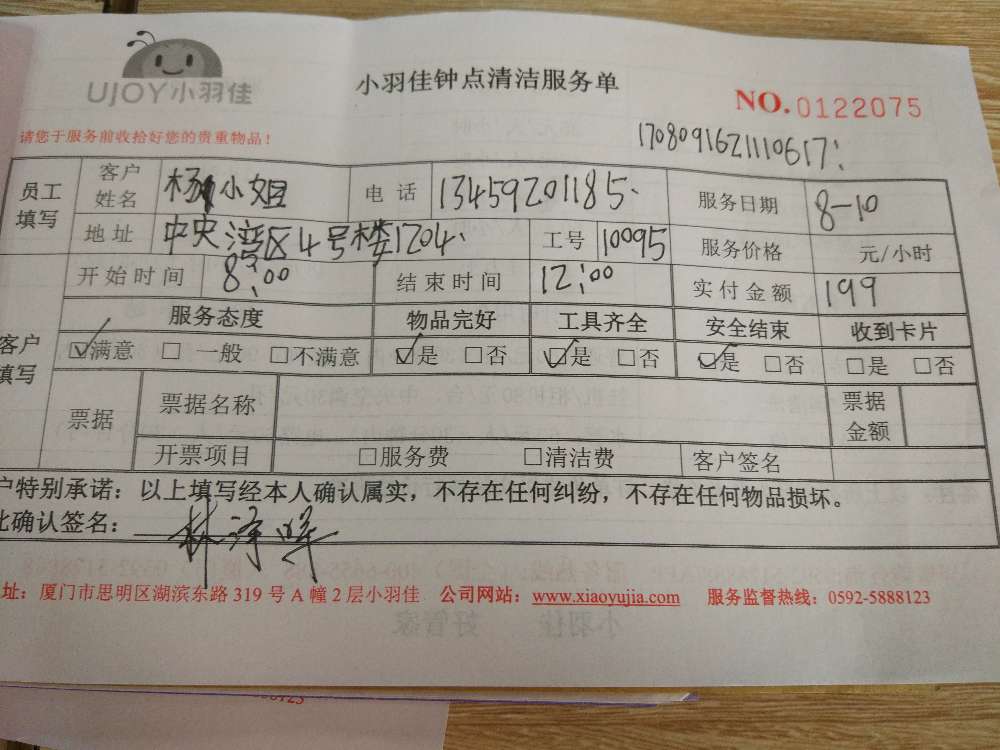 UJOY小羽佳
小羽佳钟点清洁服务单
NO.0122075
请您于服务前收拾好您的贵重物品！
1708091621110617
员工填写 客户姓名 杨小姐 电话 13459201185 服务日期 8-10
地址 中央湾区4号楼1204 工号 10095 服务价格 元/小时
开始时间 8:00 结束时间 12:00 实付金额 199
客户填写 服务态度 物品完好 工具齐全 安全结束 收到卡片
☑满意 □一般 □不满意 ☑是 □否 ☑是 □否 ☑是 □否 □是 □否
票据 票据名称 票据金额
开票项目 □服务费 □清洁费 客户签名
户特别承诺：以上填写经本人确认属实，不存在任何纠纷，不存在任何物品损坏。
此确认签名：林
址：厦门市思明区湖滨东路 319 号 A 幢 2 层小羽佳 公司网站：www.xiaoyujia.com 服务监督热线：0592-5888123